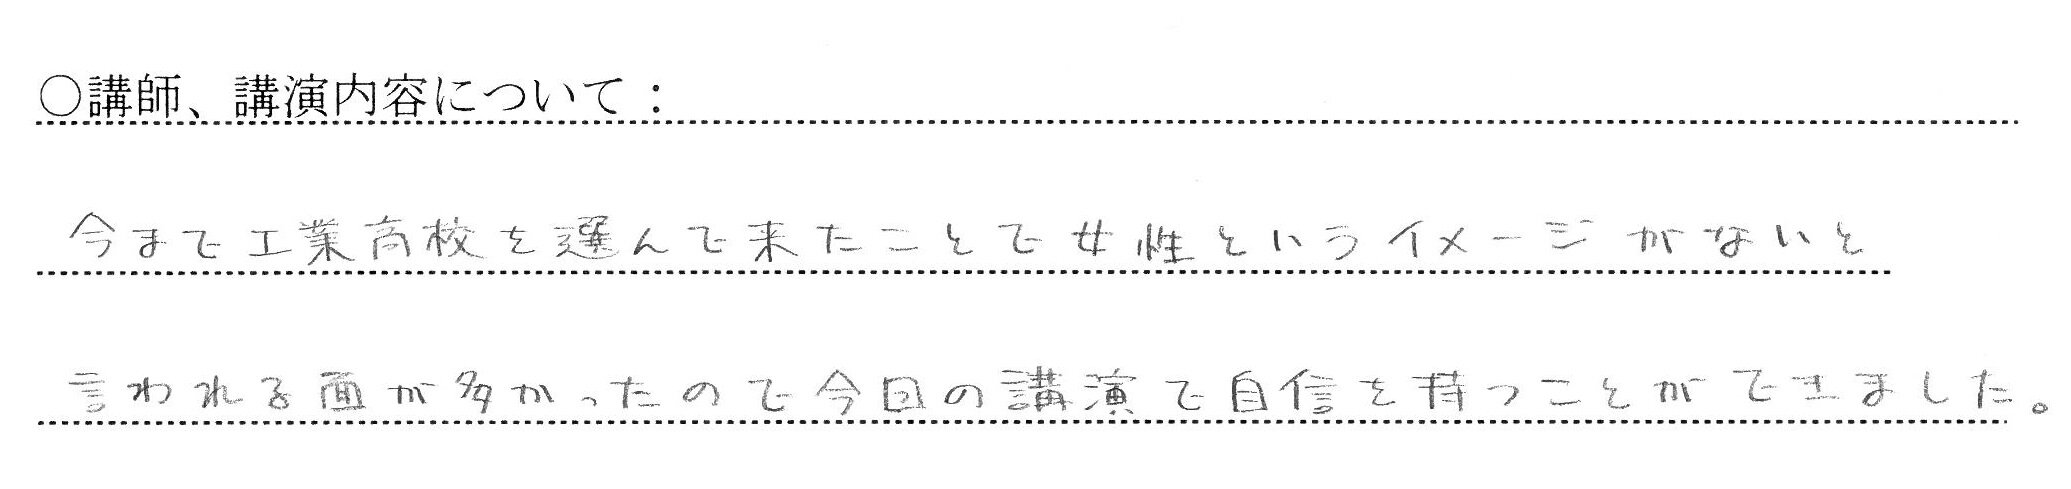 ○講師、講演内容について：
今まで工業高校を選んで来たことで女性というイメージがないと
言われる面が多かったので今回の講演で自信を持つことができました。